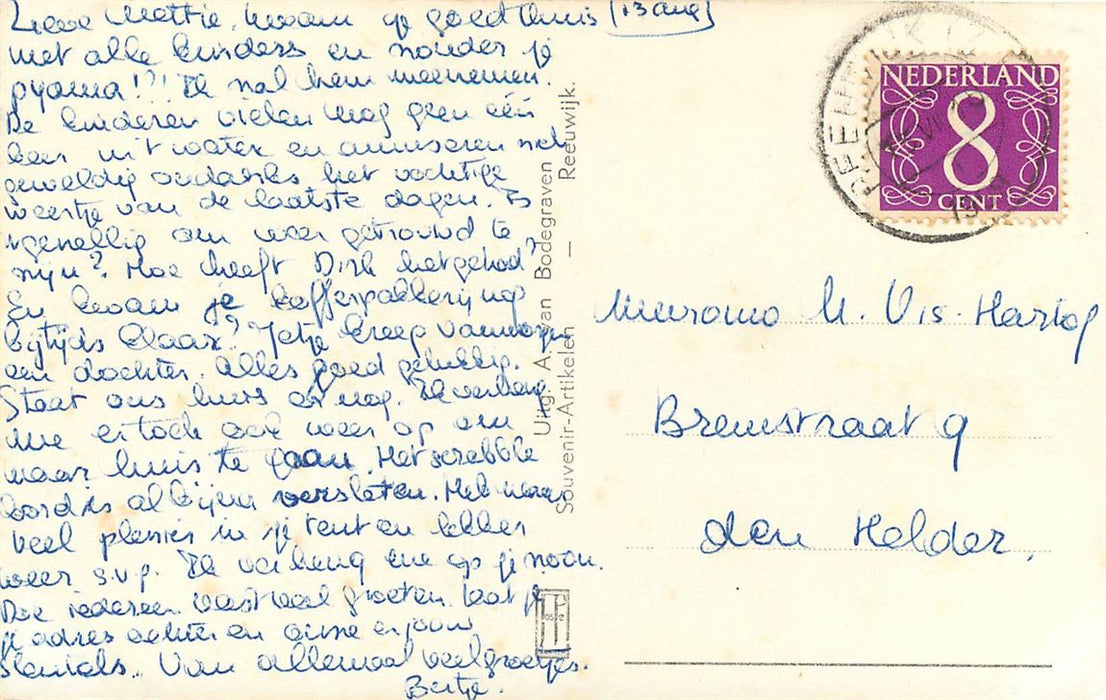 Lieve Mattie, kwam je goed thuis (13 aug)
met alle kinders en zonder je
pyama!?! Ik zal hem meenemen.
De kinderen vielen nog geen één
keer in 't water en amuseren zich
geweldig ondanks het vochtige
weertje van de laatste dagen. Is
't gezellig om weer getrouwd te
zijn? Hoe heeft Dirk het gehad?
En kwam je kofferpakkerij nog
bijtijds klaar? Jetje kreeg vanmorgen
een dochter. Alles goed gelukkig.
Staat ons huis er nog. Ik verheug
me er toch ook weer op om
naar huis te gaan. Het scrabble
bord is al bijna versleten. Heb nog
veel plezier in je tent en lekker
weer s.v.p. Ik verheug me op je zoon.
Doe iedereen vast veel groeten. Laat je
je adres achter en onze en jouw
sleutels. Van allemaal veel groetjes.
Bertje.
Uitg. A. van Bodegraven
Souvenir-Artikelen — Reeuwijk.
REEUWIJK
NEDERLAND
8
CENT
Mevrouw M. Vis-Hartog
Bremstraat 9
den Helder.